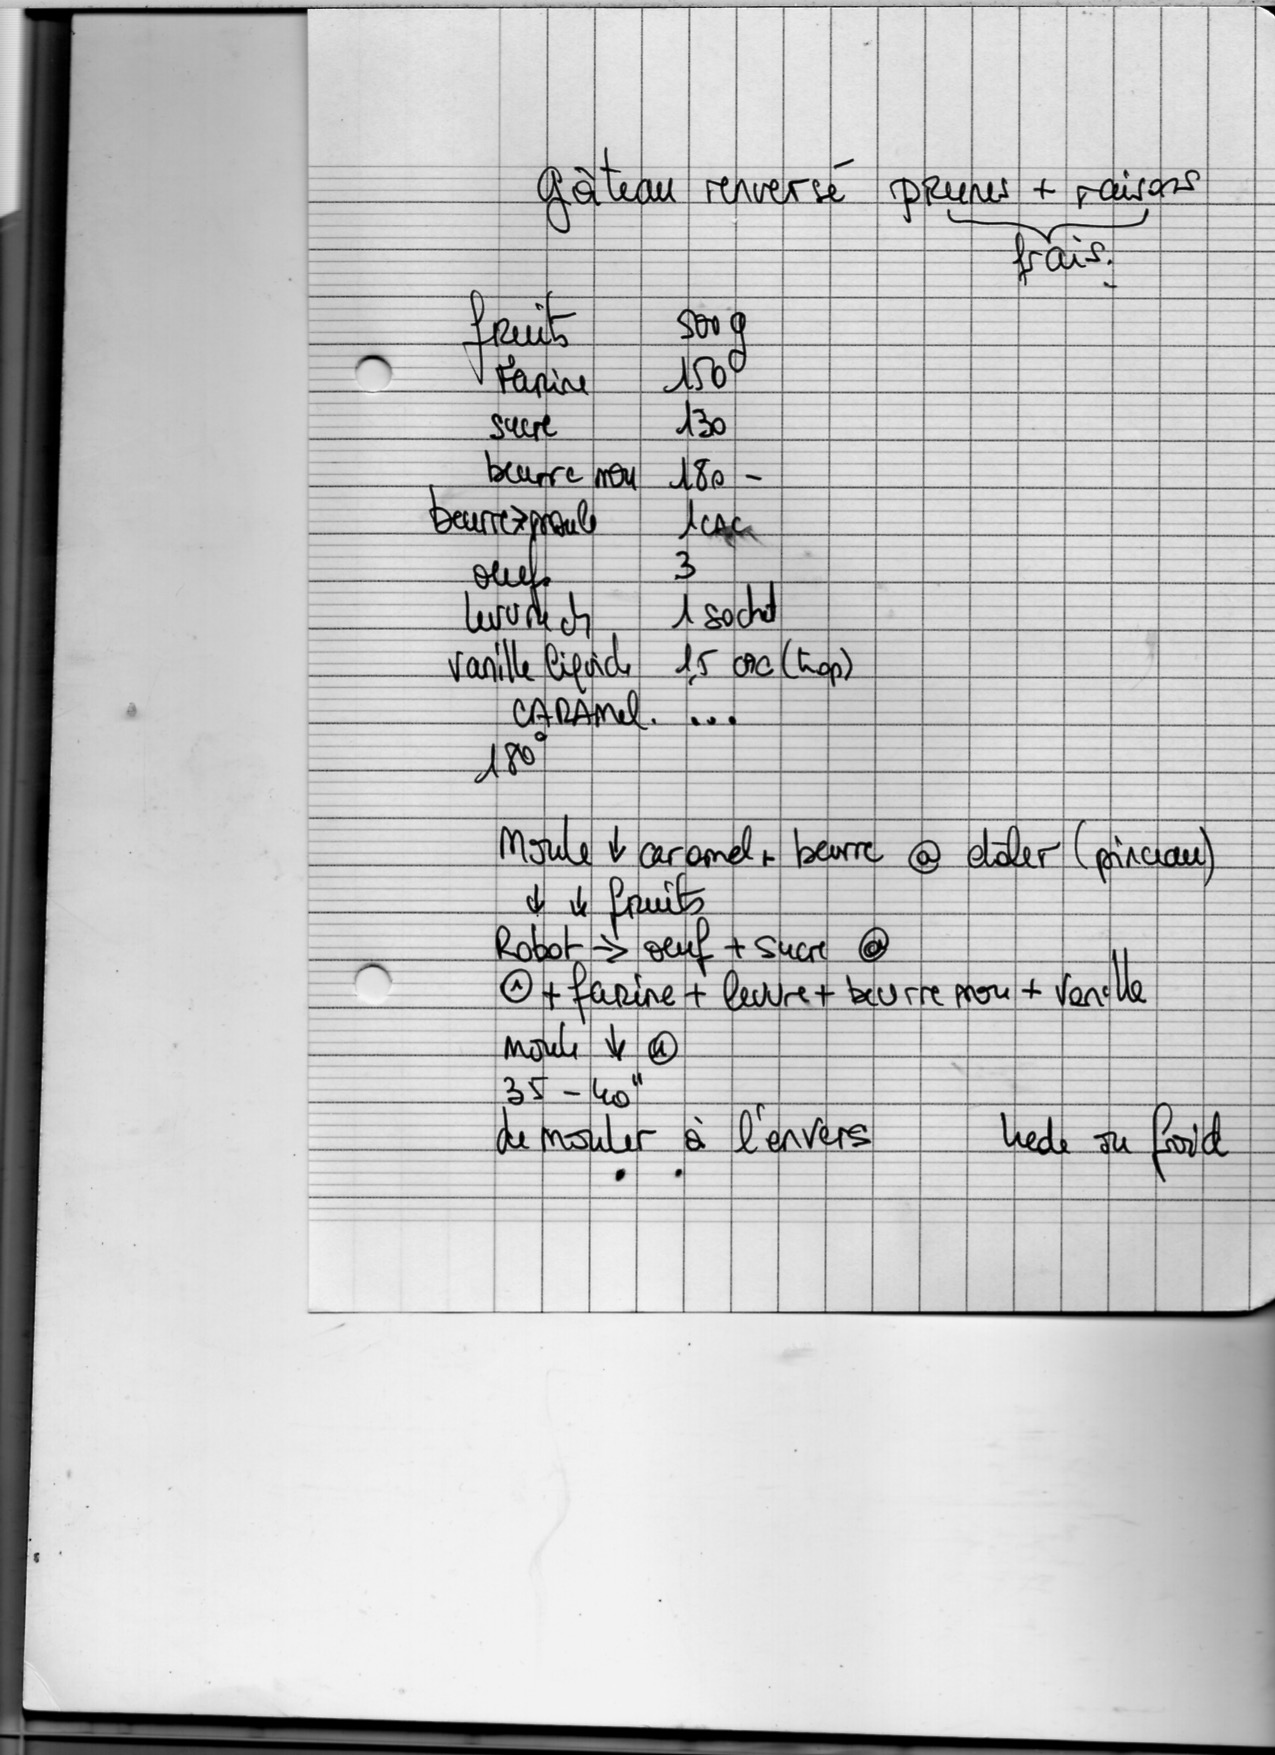 Gâteau renversé prunes + raisons
frais.
fruits 500 g
Farine 150
sucre 130
beurre mou 180 -
beurre > moule 1 CAC
oeufs 3
levure ch 1 sachet
vanille liquide 1,5 CAC (trop)
CARAMel. ...
180°
Moule ↓ caramel + beurre @ étaler (pinceau)
↓ ↓ fruits
Robot → oeuf + sucre @
+ farine + levure + beurre mou + vanille
moule ↓
35 - 40"
demouler à l'envers tiede ou froid